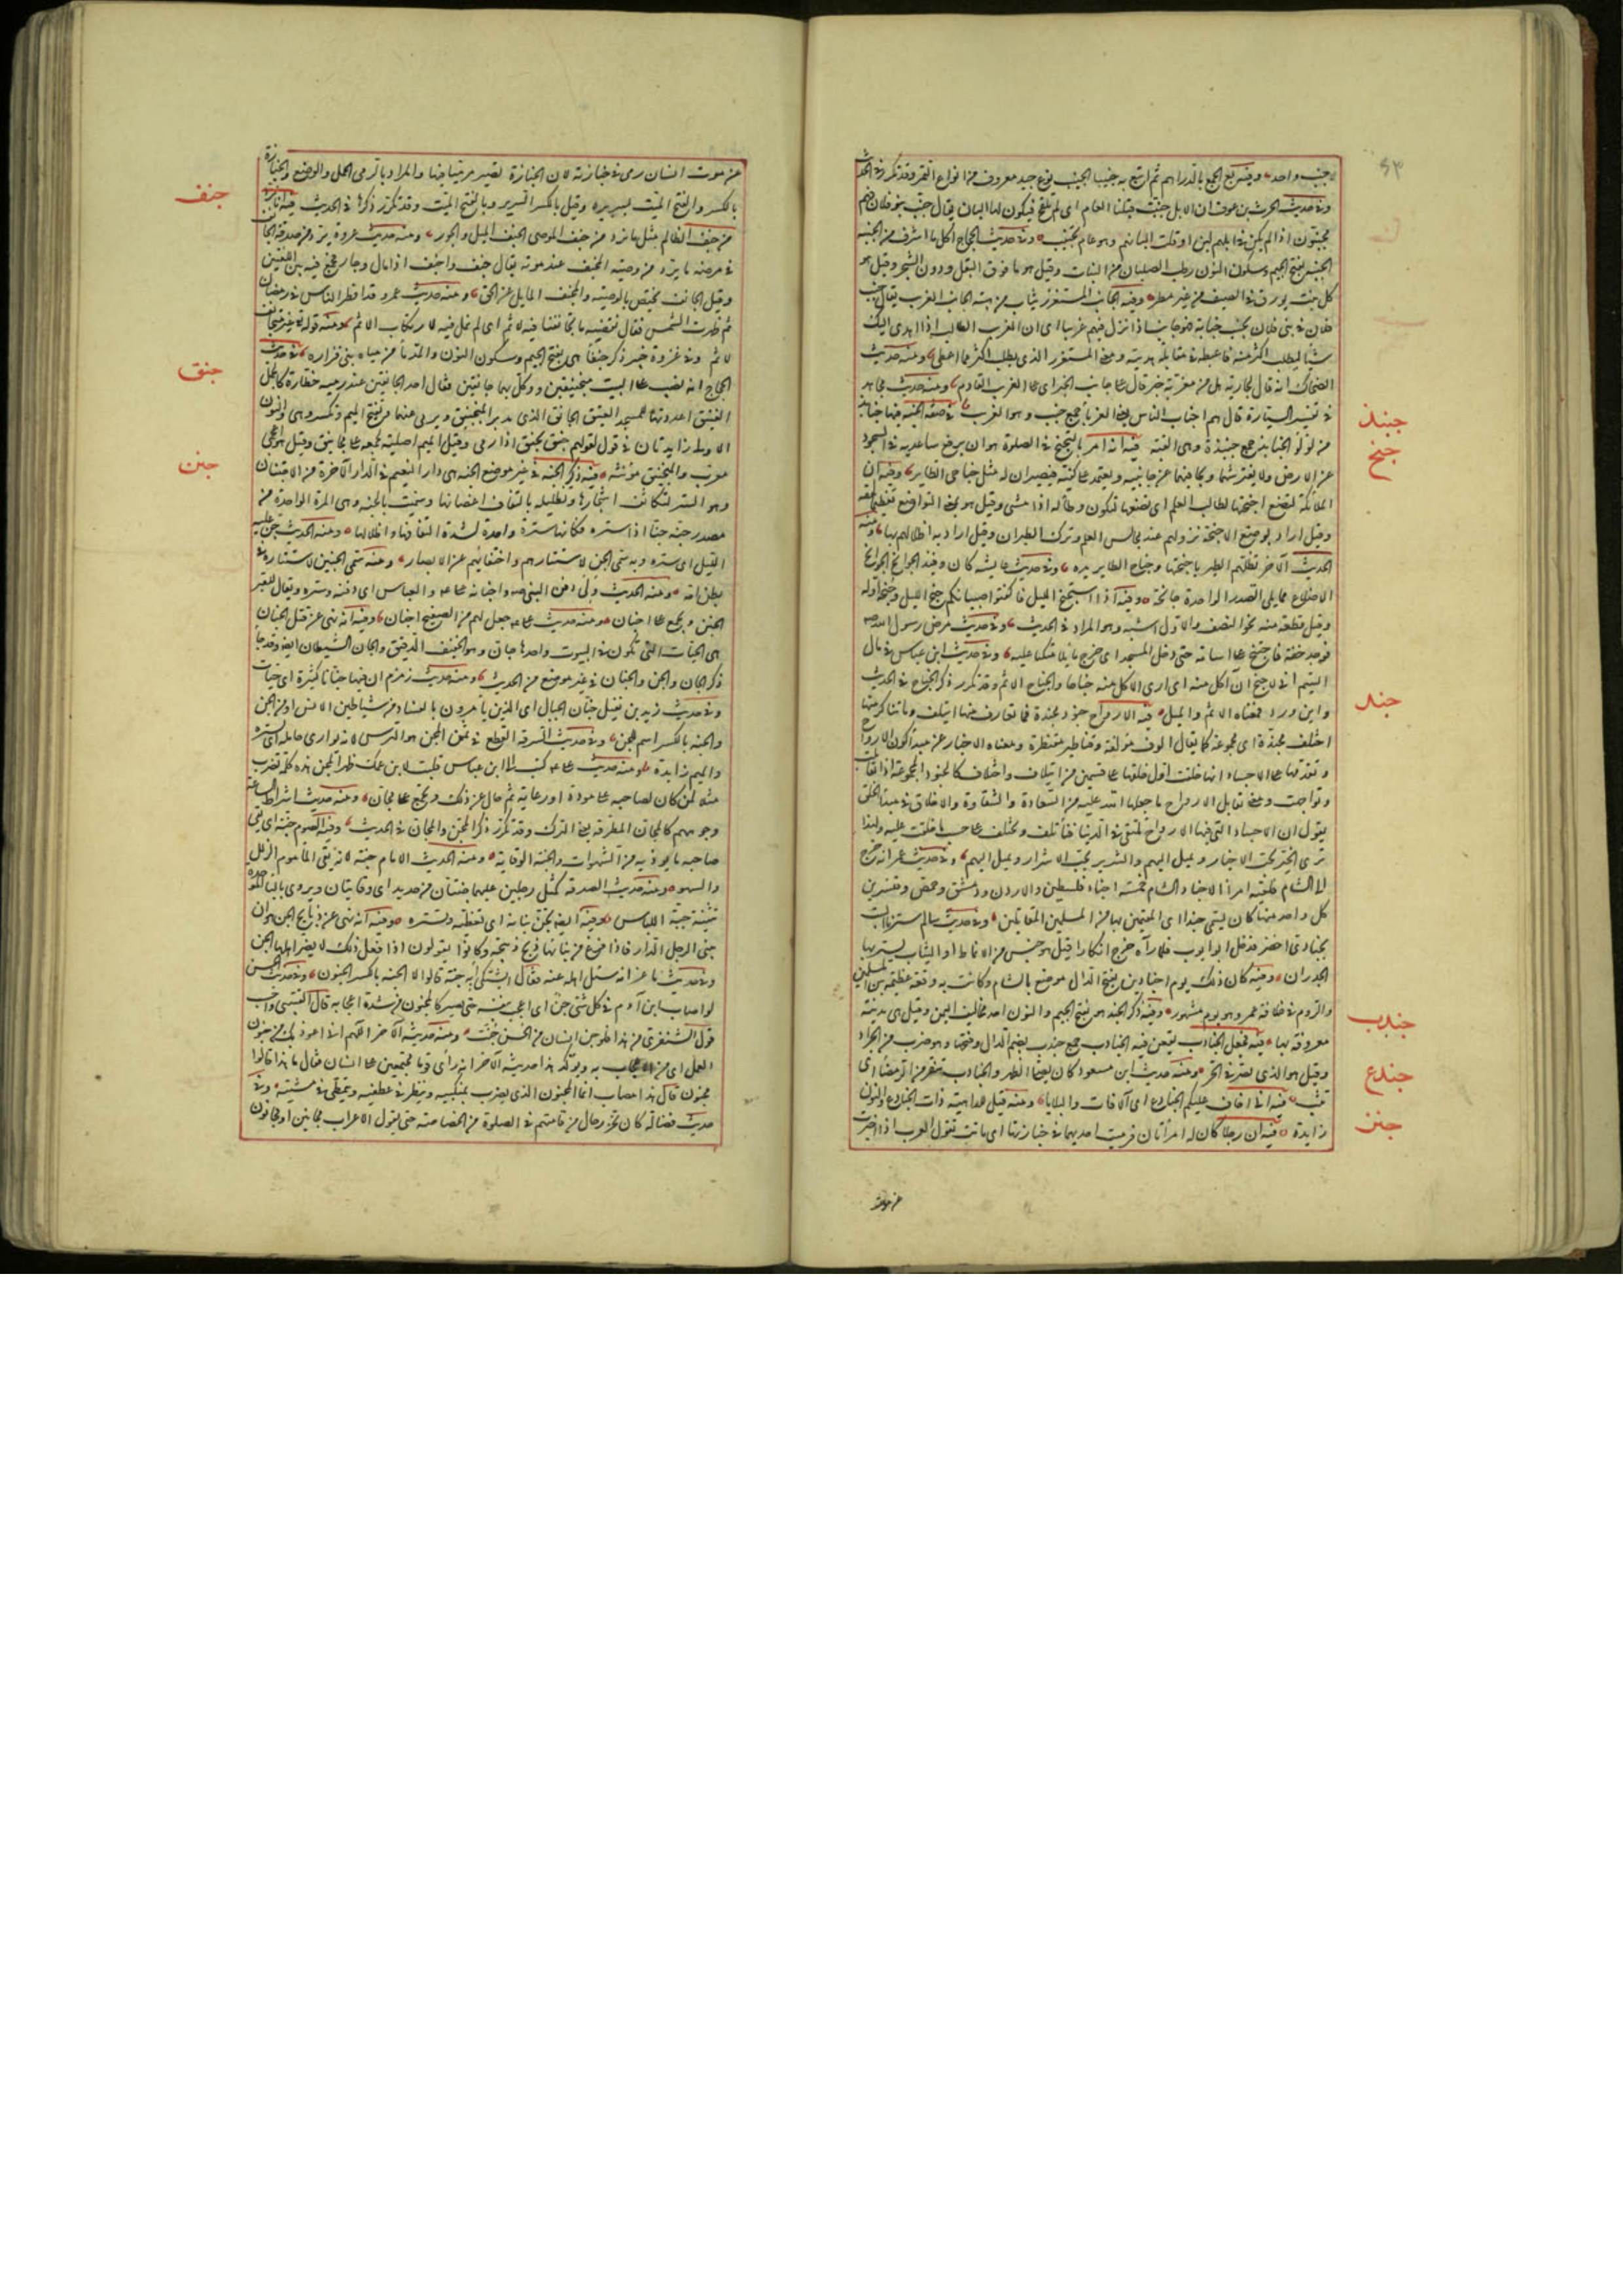 ٤٣
لا جنب واحد وفيه بع الجمع بالدراهم ثم ابتع به جنيبا الجنيب نوع جيد معروف من انواع التمر وقد تكرر في الحديث
وفي حديث الحرث بن عوف ان الابل جنبت قبلنا العام اى لم تلقح فيكون لها البان يقال جنب بنو فلان فهم
مجنبون اذا لم يكن في ابلهم لبن او قلت البانهم وهو عام تجنيب وفي حديث الحجاج اكل ما اشرف من الجنبة
الجنبة بفتح الجيم وسكون النون رطب الصليان من النبات وقيل هو ما فوق البقل ودون الشجر وقيل هو
كل نبت يورق في الصيف من غير مطر وفيه الجانب المستغزر يثاب من هبته الجانب الغريب يقال جنب
فلان في بني فلان يجنب جنابة فهو جانب اذا نزل فيهم غريبا اى ان الغريب الطالب اذا اهدى اليك
شيئا ليطلب اكثر منه فاعطه في مقابلة هديته ومعنى المستغزر الذى يطلب اكثر مما اعطى ومنه حديث
الضحاك انه قال لجارية هل من مغربة خبر قال على جانب الخبر اى على الغريب القادم ومنه حديث مجاهد
في تفسير السيارة قال هم اجناب الناس يعنى الغرباء جمع جنب وهو الغريب في صفة الجنة فيها جنابذ
من لؤلؤ الجنابذ جمع جنبذة وهى القبة فيه انه امر بالتجنح في الصلوة هو ان يرفع ساعديه في السجود
عن الارض ولا يفترشهما ويجافيهما عن جانبيه ويعتمد على كفيه فيصيران له مثل جناحى الطاير وفيه ان
الملائكة لتضع اجنحتها لطالب العلم اى تضعها لتكون وطاء له اذا مشى وقيل هو بمعنى التواضع تعظيما لحقه
وقيل اراد بوضع الاجنحة نزولهم عند مجالس العلم وترك الطيران وقيل اراد به اظلالهم بها ومنه
الحديث الآخر تظلهم الطير باجنحتها وجناح الطاير يده وفي حديث عايشة كان وقيذ الجوانح الجوانح
الاضلاع مما يلى الصدر الواحدة جانحة وفيه اذا استجنح الليل فاكفتوا صبيانكم جنح الليل وجنحه اوله
وقيل قطعة منه نحو النصف والاول اشبه وهو المراد في الحديث وفي حديث مرض رسول الله
فوجد خفة فاجتنح على اسامة حتى دخل المسجد اى خرج مايلا متكئا عليه وفي حديث ابن عباس في مال
اليتيم انى لاجنح ان آكل منه اى ارى الاكل منه جناحا والجناح الاثم وقد تكرر ذكر الجناح في الحديث
واين ورد فمعناه الاثم والميل فيه الارواح جنود مجندة فما تعارف منها ايتلف وما تناكر منها
اختلف مجندة اى مجموعة كما يقال الوف مؤلفة وقناطير مقنطرة ومعناه الاخبار عن مبدأ كون الارواح
وتقدمها على الاجساد انها خلقت اول خلقها على قسمين من ايتلاف واختلاف كالجنود المجموعة اذا تقابلت
وتواجهت ومعنى تقابل الارواح ما جعلها الله عليه من السعادة والشقاوة والاخلاق في مبدأ الخلق
يقول ان الاجساد التى فيها الارواح تلتقى في الدنيا فتأتلف وتختلف على حسب ما خلقت عليه ولهذا
ترى الخير يحب الاخيار ويميل اليهم والشرير يحب الاشرار ويميل اليهم وفي حديث عمر انه خرج
الى الشام فلقيه امراء الاجناد الشام خمسة اجناد فلسطين والاردن ودمشق وحمص وقنسرين
كل واحد منها كان يسمى جندا اى المقيمين بها من المسلمين المقاتلين وفي حديث سالم سترنا البيت
بجنادى اخضر فدخل ابو ايوب فلما رآه خرج انكارا قيل هو جنس من الانماط او الثياب يستر بها
الجدران وفيه كان ذلك يوم اجنادين بفتح الدال موضع بالشام وكانت به وقعة عظيمة بين المسلمين
والروم في خلافة عمر وهو يوم مشهور وفيه ذكر الجند هو بفتح الجيم والنون احد مخاليف اليمن وقيل هى مدينة
معروفة بها فيه فجعل الجنادب يقعن فيه الجنادب جمع جندب بضم الدال وفتحها وهو ضرب من الجراد
وقيل هو الذى يصر في الحر ومنه حديث ابن مسعود كان يصلى الظهر والجنادب تنقز من الرمضاء اى
تثب فيه انى اخاف عليكم الجنادع اى الآفات والبلايا ومنه قيل للداهية ذات الجنادع والنون
زايدة فيه ان رجلا كان له امرأتان فرميت احديهما في جنازتها اى ماتت تقول العرب اذا اخبرت
جنبذ
جنح
جند
جندب
جندع
جنز
عن موت
عن موت انسان رمى في جنازته لان الجنازة تصير مرميا فيها والمراد بالرمى الحمل والوضع والجنازة
بالكسر والفتح الميت بسريره وقيل بالكسر السرير وبالفتح الميت وقد تكرر ذكرها في الحديث فيه انا نرد
من جنف الظالم مثل ما نرد من جنف الموصى الجنف الميل والجور ومنه حديث عروة يرد من صدقة الجانف
في مرضه ما يرد من وصية المجنف عند موته يقال جنف واجنف اذا مال وجار فجمع فيه بين اللغتين
وقيل الجانف يختص بالوصية والمجنف المايل عن الحق ومنه حديث عمر وقد افطر الناس في رمضان
ثم ظهرت الشمس فقال نقضيه ما تجانفنا فيه لاثم اى لم نمل فيه لارتكاب الاثم ومنه قوله تعالى غير متجانف
لاثم وفي غزوة خيبر ذكر جنفاء هى بفتح الجيم وسكون النون والمد ماء من مياه بنى فزارة في حديث
الحجاج انه نصب على البيت منجنيقين ووكل بهما جانقين فقال احد الجانقين عند رميه خطارة كالجمل
الفنيق اعددتها للمسجد العتيق الجانق الذى يدبر المنجنيق ويرمى عنها وتفتح الميم وتكسر وهى والنون
الاولى زايدتان في قول لقولهم جنق يجنق اذا رمى وقيل الميم اصلية لجمعه على مجانيق وقيل هو اعجمى
معرب والمنجنيق مؤنثة فيه ذكر الجنة في غير موضع الجنة هى دار النعيم في الدار الآخرة من الاجتنان
وهو الستر لتكاثف اشجارها وتظليلها بالتفاف اغصانها وسميت بالجنة وهى المرة الواحدة من
مصدر جنه جنا اذا ستره فكانها سترة واحدة لشدة التفافها واظلالها ومنه الحديث جن عليه
الليل اى ستره وبه سمى الجن لاستتارهم واختفائهم عن الابصار ومنه سمى الجنين لاستتاره في
بطن امه ومنه الحديث ولى دفن النبى واجنانه على والعباس اى دفنه وستره ويقال للقبر
الجنن ويجمع على اجنان ومنه حديث على جعل لهم من الصفيح اجنان وفيه انه نهى عن قتل الجنان
هى الحيات التى تكون في البيوت واحدها جان وهو الخفيف الدقيق والجان الشيطان ايضا وقد جاء
ذكر الجان والجن والجنان في غير موضع من الحديث ومنه حديث زمزم ان فيها جنانا كثيرة اى حيات
وفي حديث زيد بن نفيل جنان الجبال اى الذين يأمرون بالفساد من شياطين الانس او من الجن
والجنة بالكسر اسم للجن وفي حديث السرقة القطع في ثمن المجن هو الترس لانه يوارى حامله اى يستره
والميم زايدة ومنه حديث على كتب الى ابن عباس قلبت لابن عمك ظهر المجن هذه كلمة تضرب
مثلا لمن كان لصاحبه على مودة او رعاية ثم حال عن ذلك ويجمع على مجان ومنه حديث اشراط الساعة
وجوههم كالمجان المطرقة يعنى الترك وقد تكرر ذكر المجن والمجان في الحديث وفيه الصوم جنة اى يقى
صاحبه ما يوذيه من الشهوات والجنة الوقاية ومنه الحديث الامام جنة لانه يقى المأموم الزلل
والسهو ومنه حديث الصدقة كمثل رجلين عليهما جنتان من حديد اى وقايتان ويروى بالباء الموحدة
تثنية جبة اللباس وفيه ايضا تجن بنانه اى تغطيه وتستره وفيه انه نهى عن ذبايح الجن هو ان
يبنى الرجل الدار فاذا فرغ من بنائها ذبح ذبيحة وكانوا يقولون اذا فعل ذلك لا يضر اهلها الجن
وفي حديث ماعز انه سئل اهله عنه فقال ايشتكى ام به جنة قالوا لا الجنة بالكسر الجنون وفي حديث الحسن
لو اصاب ابن آدم في كل شئ جن اى اعجب بنفسه حتى يصير كالمجنون من شدة اعجابه قال القتيبى واحسب
قول الشنفرى من هذا فلو جن انسان من الحسن جنت ومنه حديثه الآخر اللهم انى اعوذ بك من جنون
العمل اى من الاعجاب به ويؤكد هذا حديثه الآخر انه رأى قوما مجتمعين على انسان فقال ما هذا قالوا
مجنون قال هذا مصاب انما المجنون الذى يضرب بمنكبيه وينظر في عطفيه ويتمطى في مشيته وفي
حديث فضالة كان يخر رجال من قامتهم في الصلوة من الخصاصة حتى يقول الاعراب مجانين او مجانون
جنف
جنق
جنن